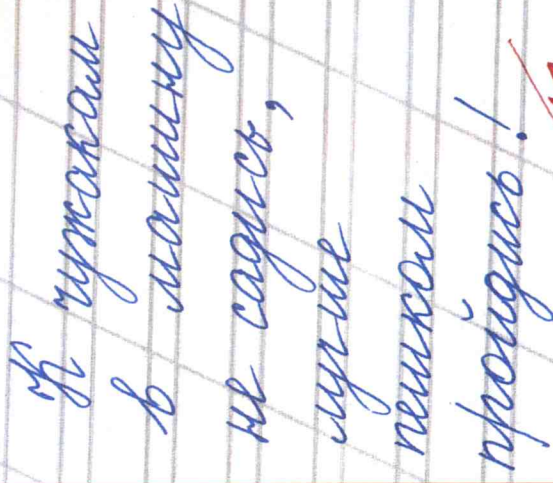 К чужакам
в машину
не садись,
лучше
пешком
пройдись!